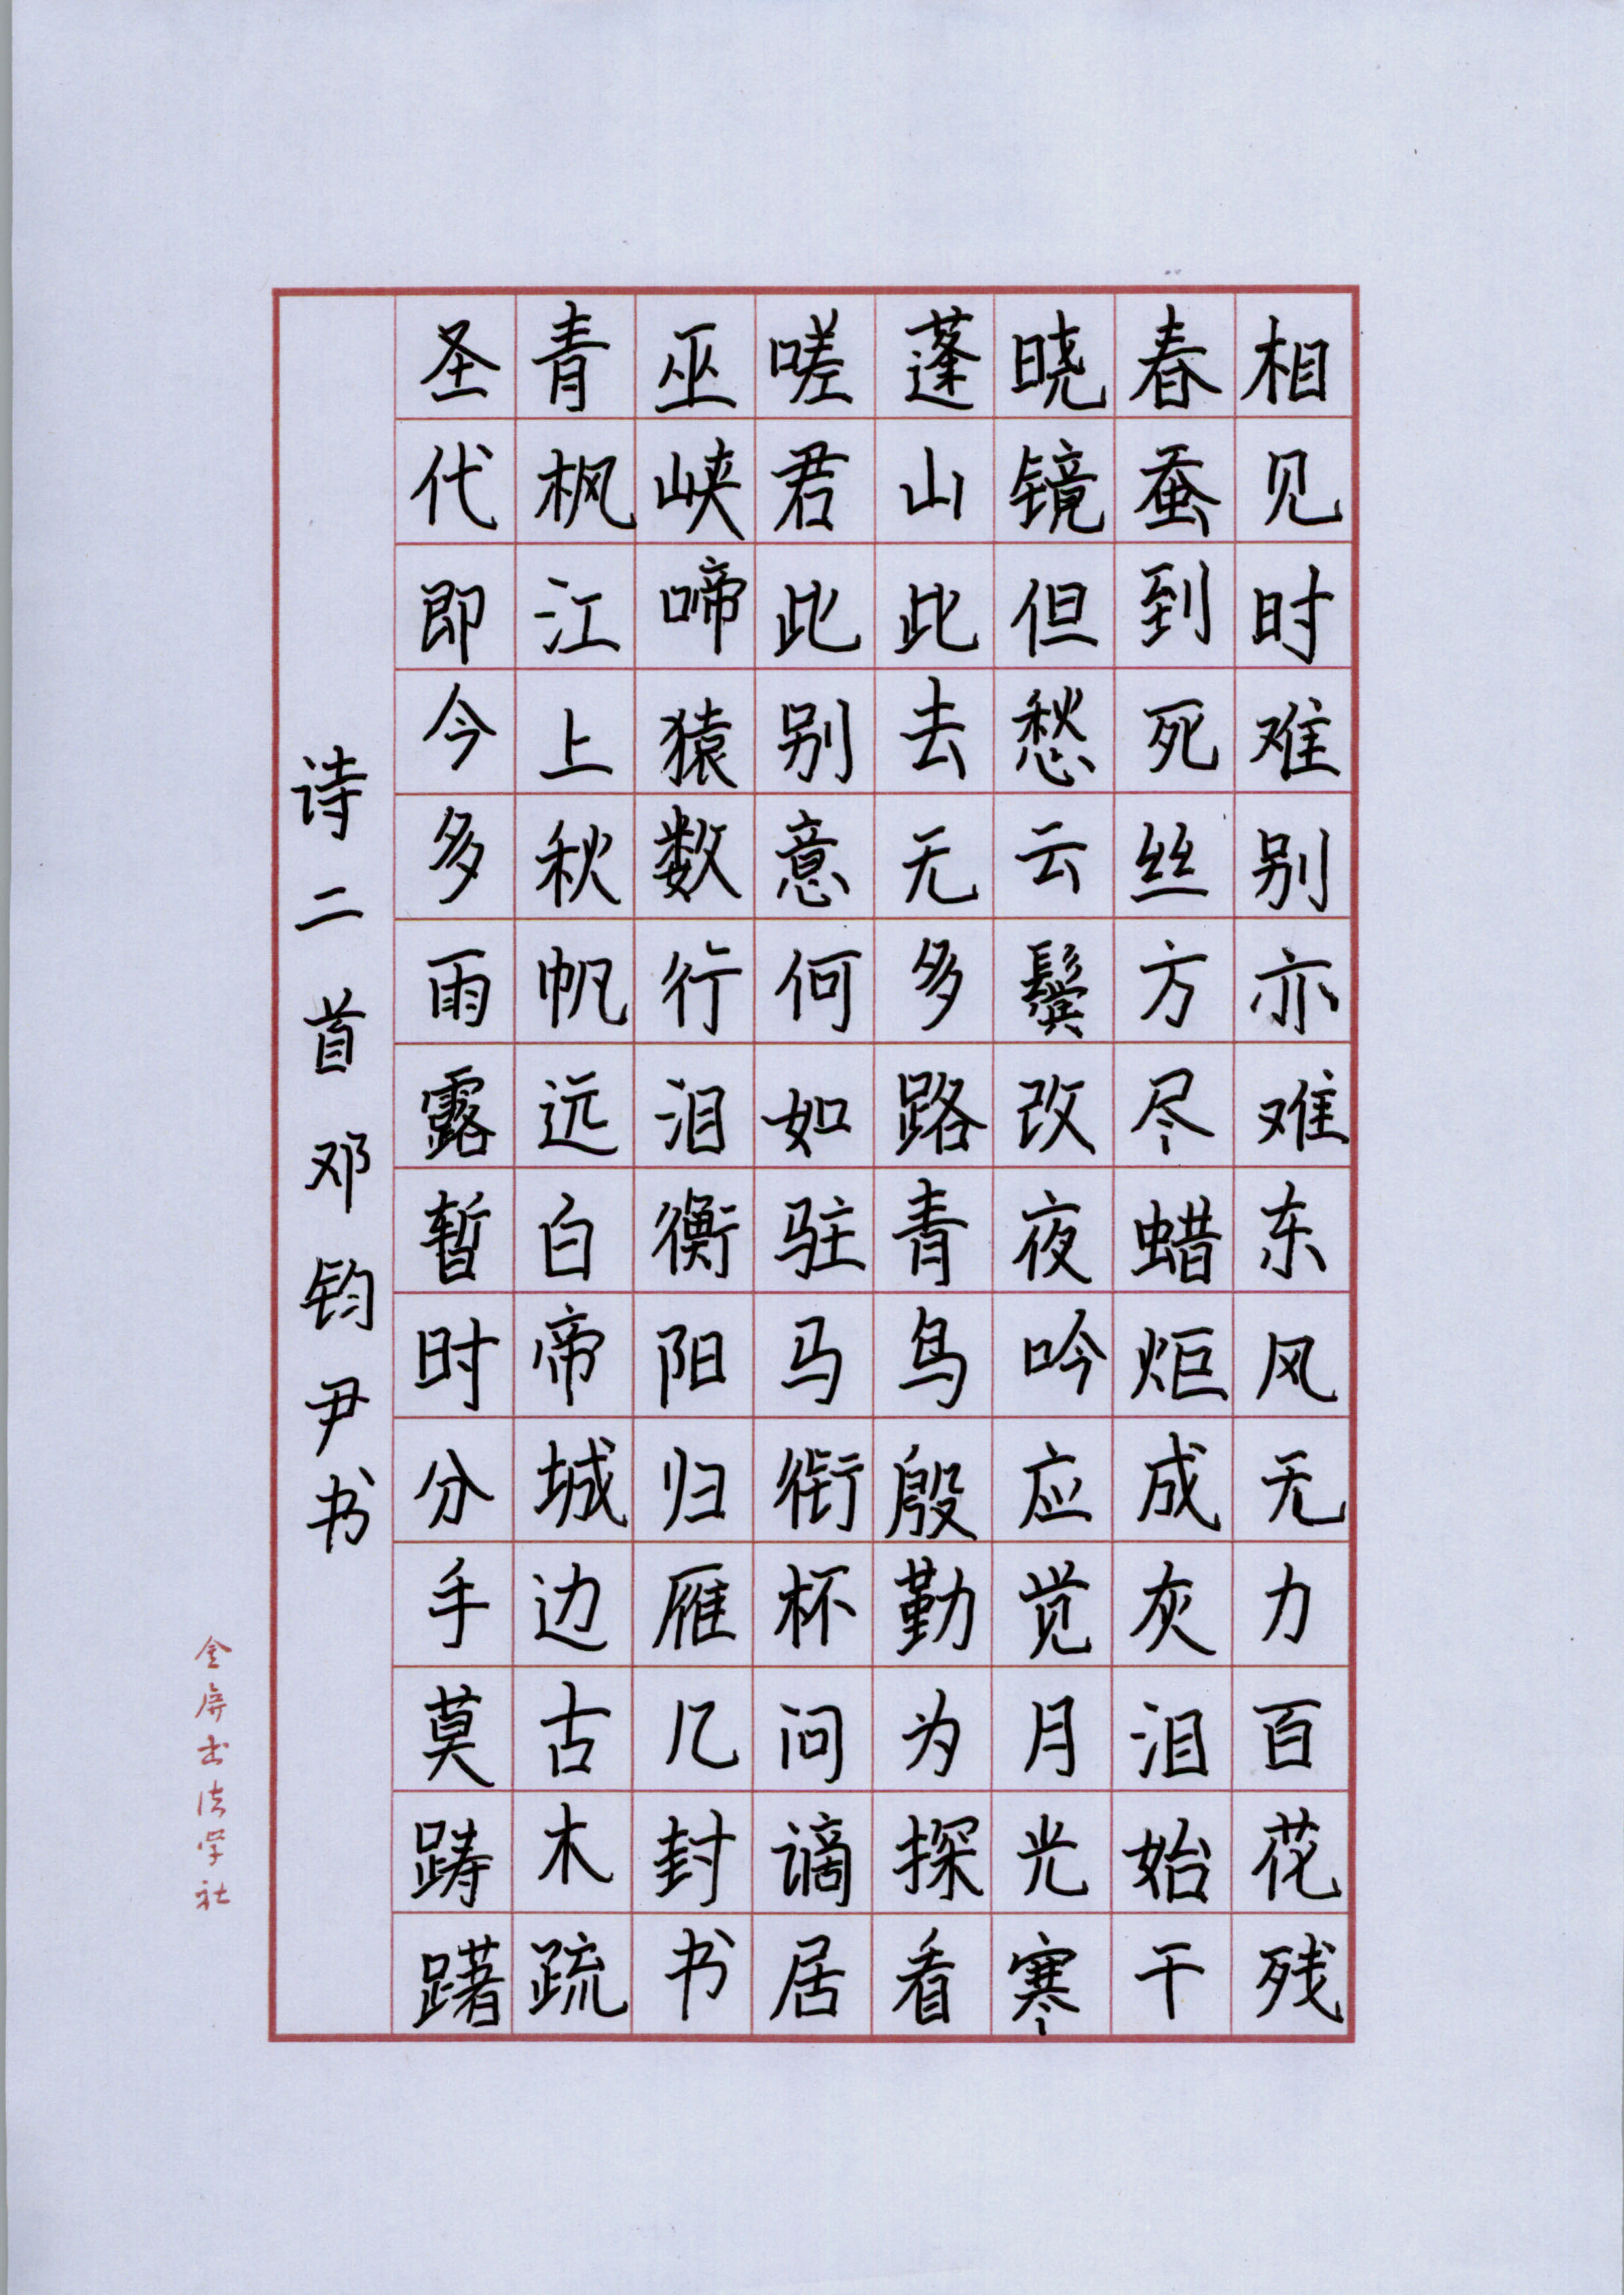 相见时难别亦难东风无力百花残
春蚕到死丝方尽蜡炬成灰泪始干
晓镜但愁云鬓改夜吟应觉月光寒
蓬山此去无多路青鸟殷勤为探看
嗟君此别意何如驻马衔杯问谪居
巫峡啼猿数行泪衡阳归雁几封书
青枫江上秋帆远白帝城边古木疏
圣代即今多雨露暂时分手莫踌躇
诗二首邓钧尹书
金屏书法学社